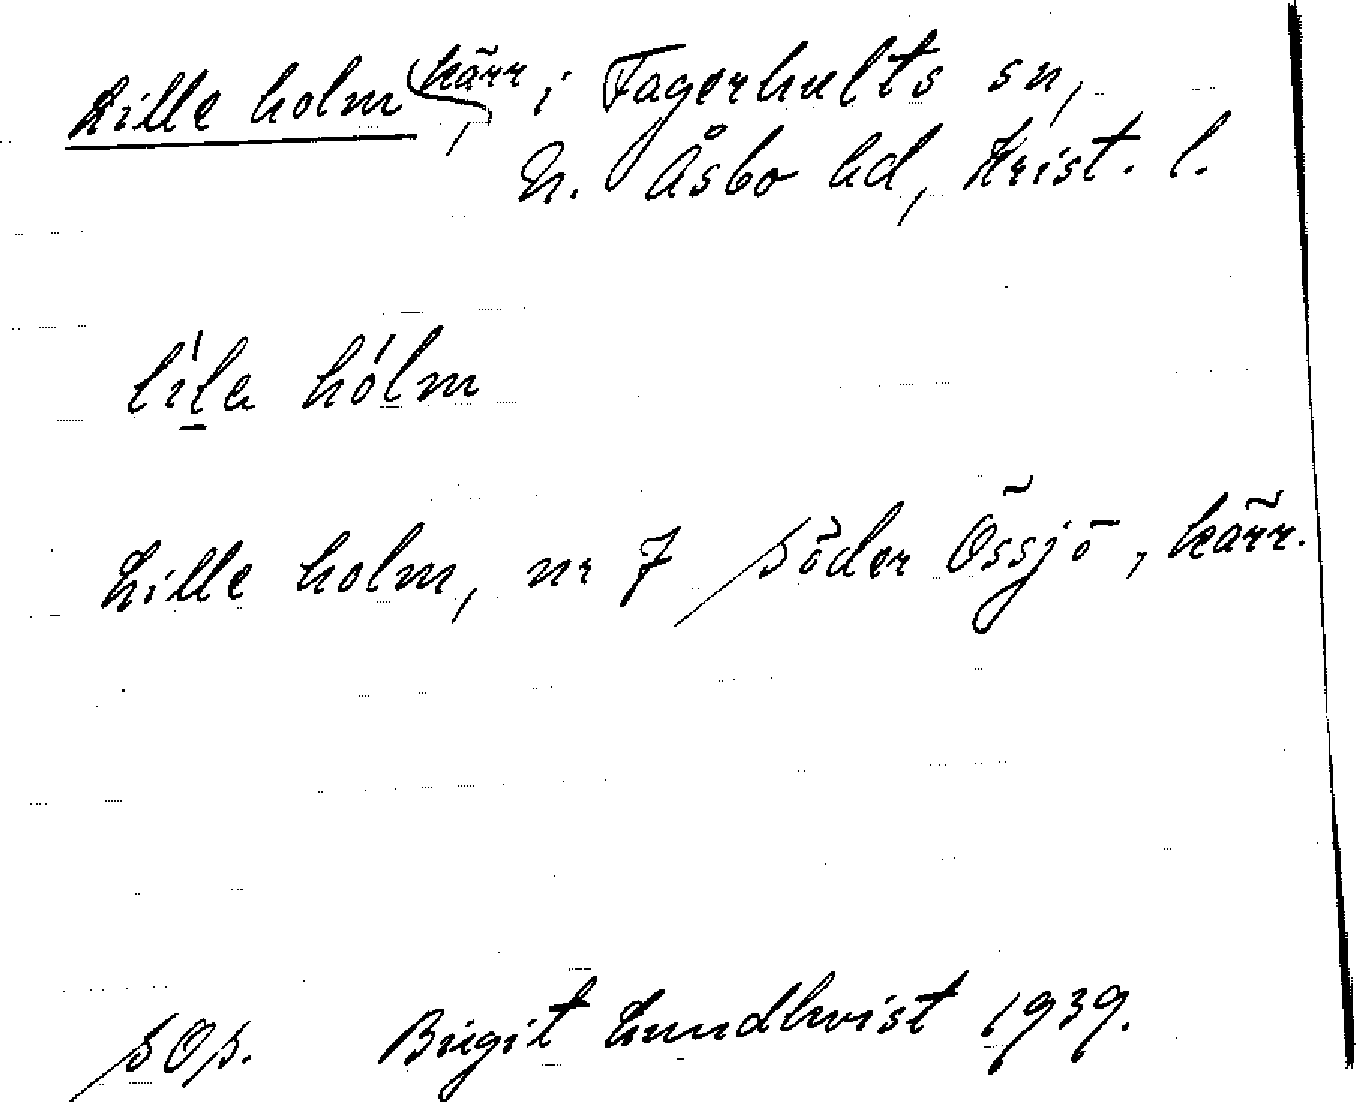 Lille holm, kärr, i Fagerhults sn,
N. Åsbo hd, Krist. l.
líla hólm
Lille holm, nr 7 Söder Össjö, kärr.
SOS. Birgit Lundkvist 1939.